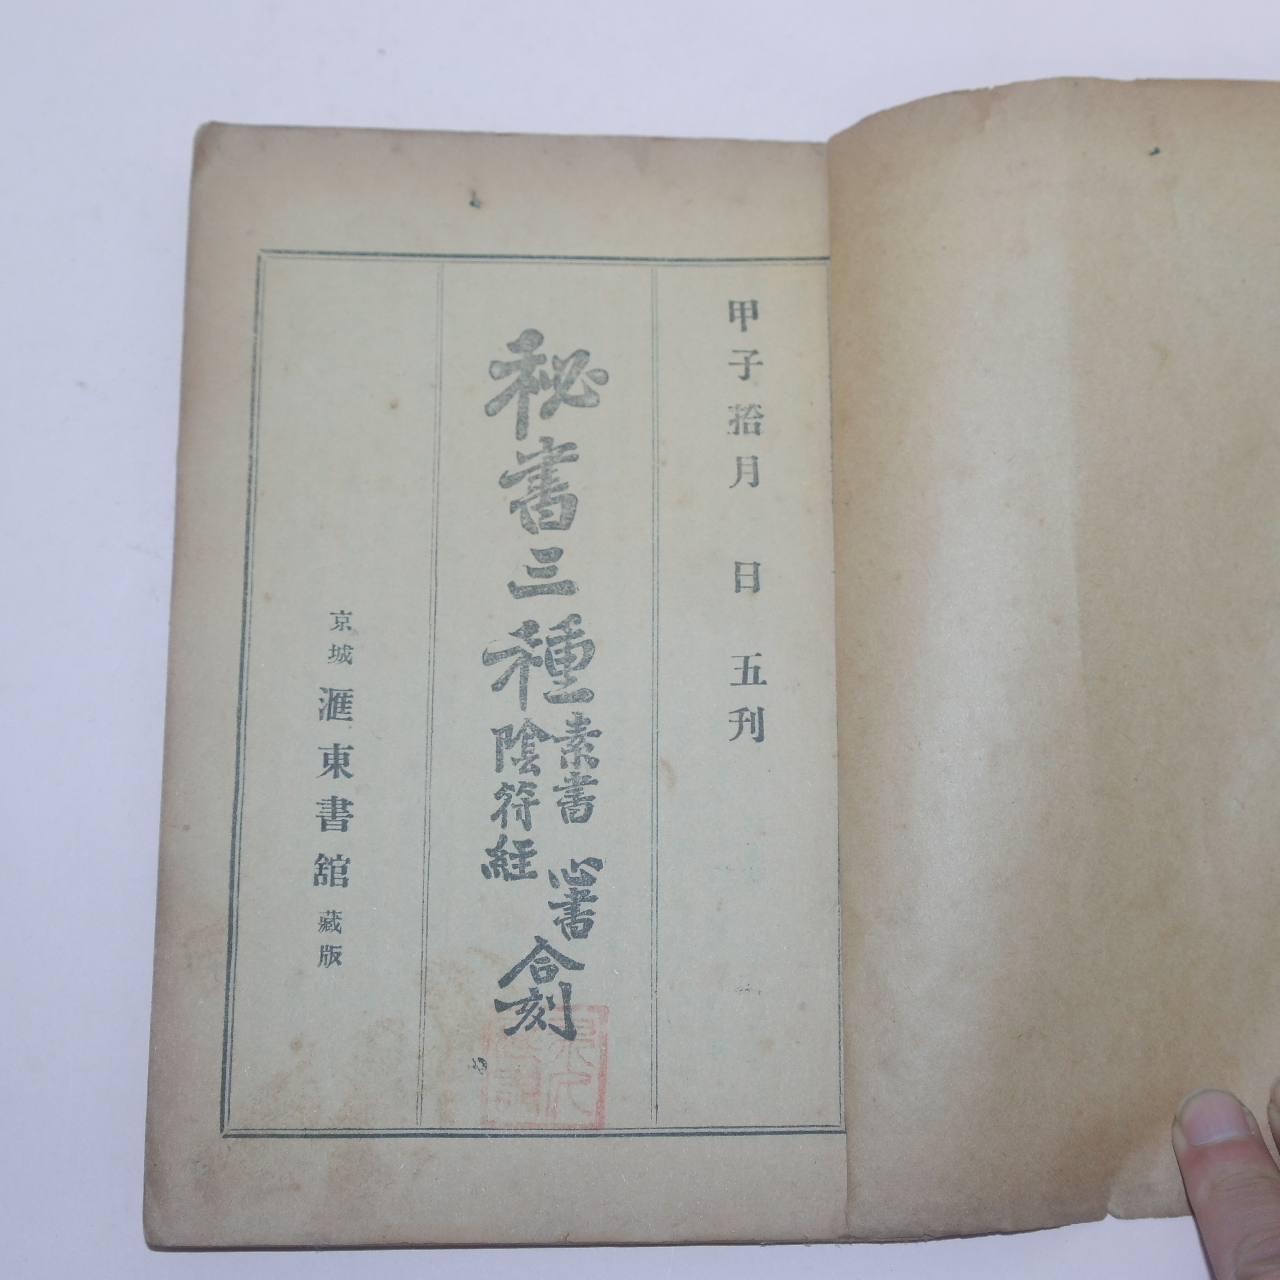 甲子拾月 日 五刊
秘書三種
素書 心書
陰符經
合刻
京城 滙東書舘 藏版